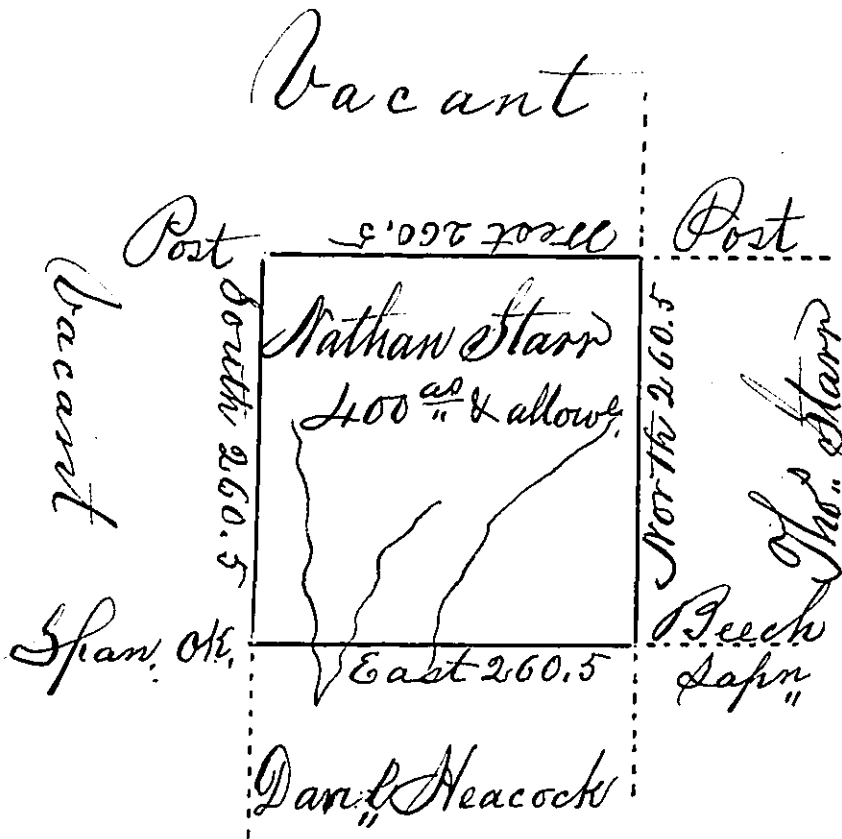 Vacant
Post
West 260.5
Post
Vacant
South 260.5
Nathan Starr
400 as & allowe.
North 260.5
Thos. Starr
Span. Ok.
East 260.5
Beech
Sapn
Danl. Heacock